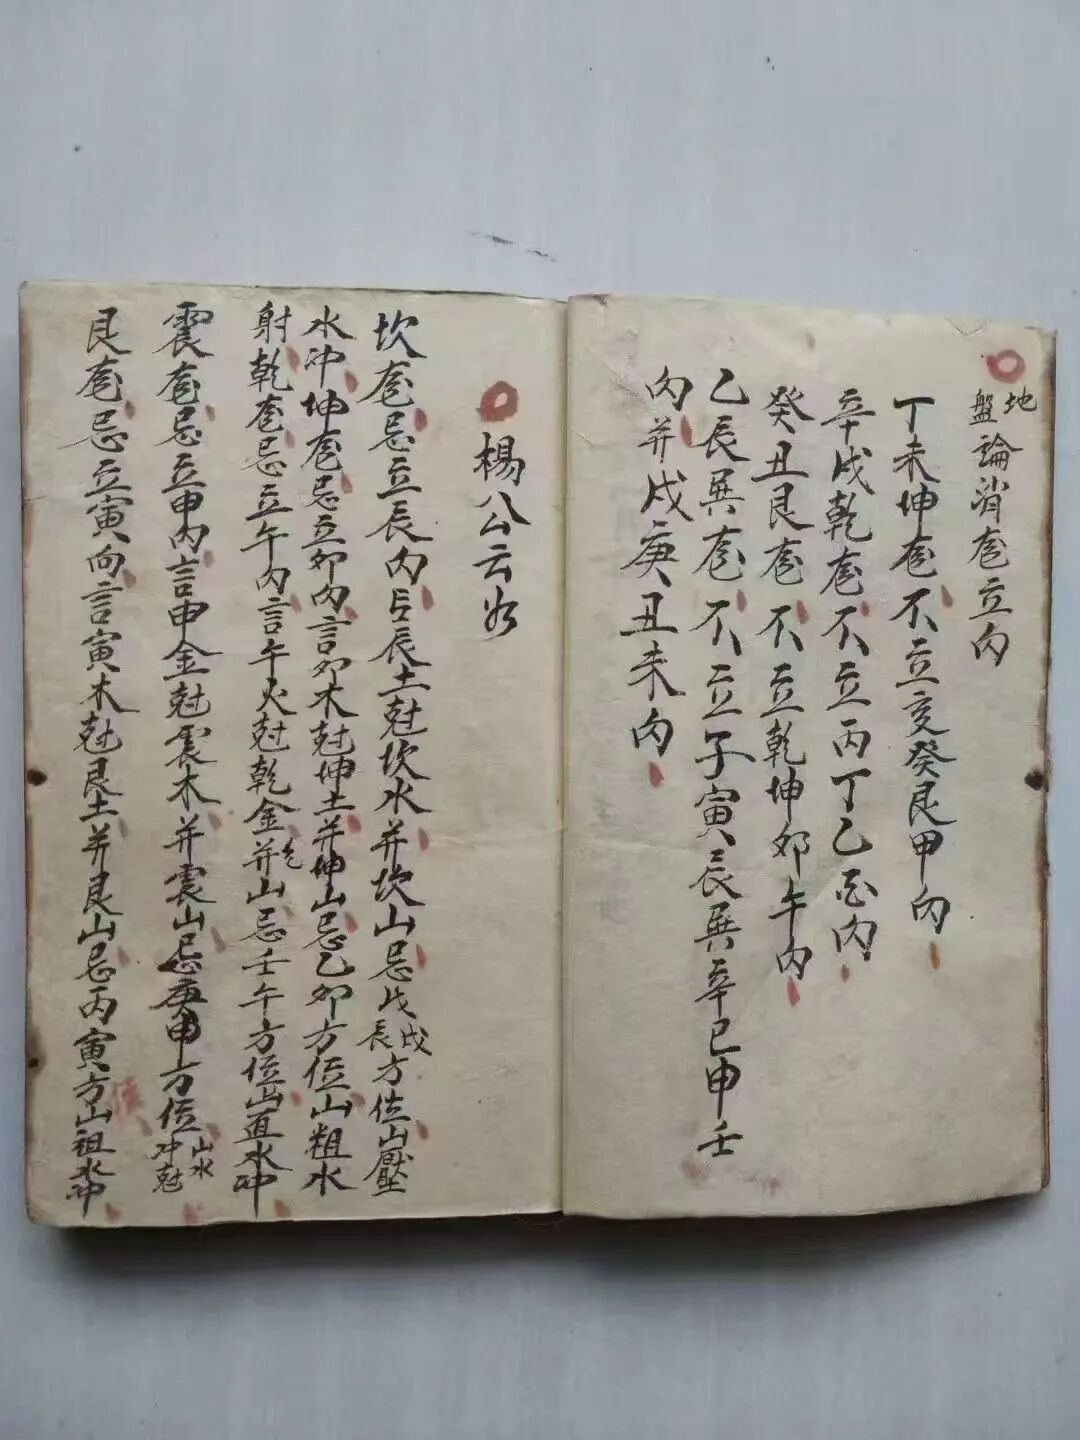 地盤論消竜立向
丁未坤竜不立亥癸艮甲向
辛戌乾竜不立丙丁乙酉向
癸丑艮竜不立乾坤卯午向
乙辰巽竜不立子寅辰巽辛巳申壬
向并戌庚丑未向
楊公云
坎竜忌立辰向 辰土尅坎水并坎山忌戊辰戌方位山壓
水冲坤竜忌立卯向言卯木尅坤土并坤山忌乙卯方位山粗水
射乾竜忌立午向言午火尅乾金并乾山忌壬午方位山直水冲
震竜忌立申向言申金尅震木并震山忌庚申方位山水冲尅
艮竜忌立寅向言寅木尅艮土并艮山忌丙寅方山祖水冲
位